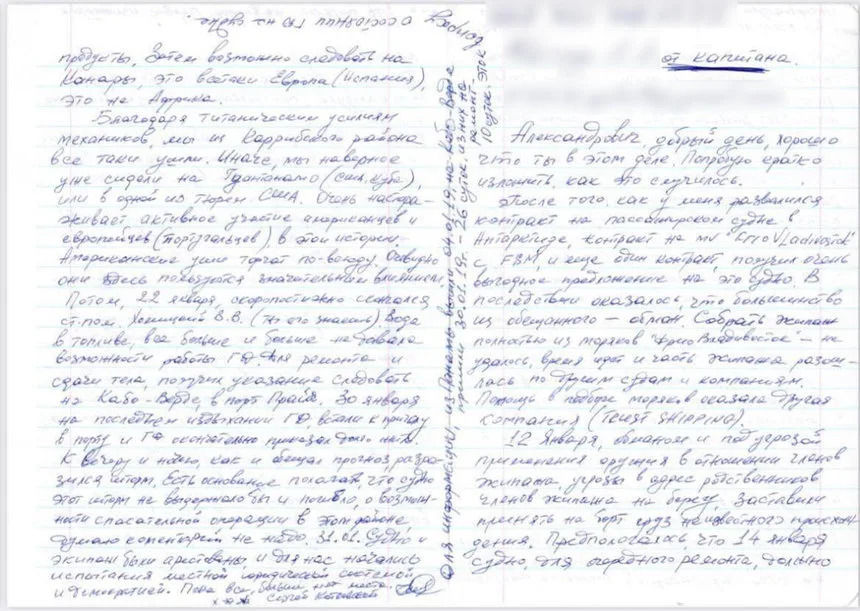 продукты. Затем возможно следовать на
Канары, это всетаки Европа (Испания),
это не Африка.
Благодаря титаническим усилиям
механиков, мы из Каррибского района
все таки ушли. Иначе, мы наверное
уже сидели на Гуантанамо (США, Куба),
или в одной из тюрем США. Очень настора-
живает активное участие американцев и
европейцев (португальцев), в этой истории.
Американские уши торчат по-всюду. Очевидно
они здесь пользуются значительным влиянием.
Потом, 22 января, скоропостижно скончался
ст.пом. В.В. (ты его знаешь) Вода
в топливе, все больше и больше не давала
возможности работы ГД. Для ремонта и
сдачи тела, получил указание следовать
на Кабо-Верде, в порт Прайя. 30 января
на последнем издыхании ГД, встали к причалу
в порту и ГД окончательно приказал долго жить.
К вечеру и ночью, как и обещал прогноз, разра-
зился шторм. Есть основание полагать, что судно
этот шторм не выдержало бы и погибло, о возмож-
ности спасательной операции в этом районе,
думаю коментарий не надо. 31.01. Судно и
экипаж были арестованы, и для нас начались
испытания местной юридической системой
и демократией. Пока все,
Сергей
Для информации, из Панамы вышли 04.01.19, на Кабо-Верде
пришли 30.01.19г. – 26 суток. Из них на
ремонт
10 суток. Это к
вопросу
от капитана.
Александрович, добрый день, хорошо
что ты в этом деле. Попробую кратко
изложить, как это случилось.
После того, как у меня развалился
контракт на пассажирском судне в
Антарктиде, контракт на mv "Crio Vladivostok"
с FBM, и еще один контракт, получил очень
выгодное предложение на это судно. В
последствии оказалось, что большинство
из обещанного – обман. Собрать экипаж
полностью из моряков "Крио Владивосток" – не
удалось, время идет и часть экипажа разош-
лась по другим судам и компаниям.
Помощь в подборе моряков оказала другая
компания (TRUST SHIPPING).
12 Января, обманом и под угрозой
применения оружия в отношении членов
экипажа, угрозы в адрес родственников
членов экипажа на берегу, заставили
принять на борт груз неизвестного происхож-
дения. Предполагалось, что 14 января
судно, для очередного ремонта, должно